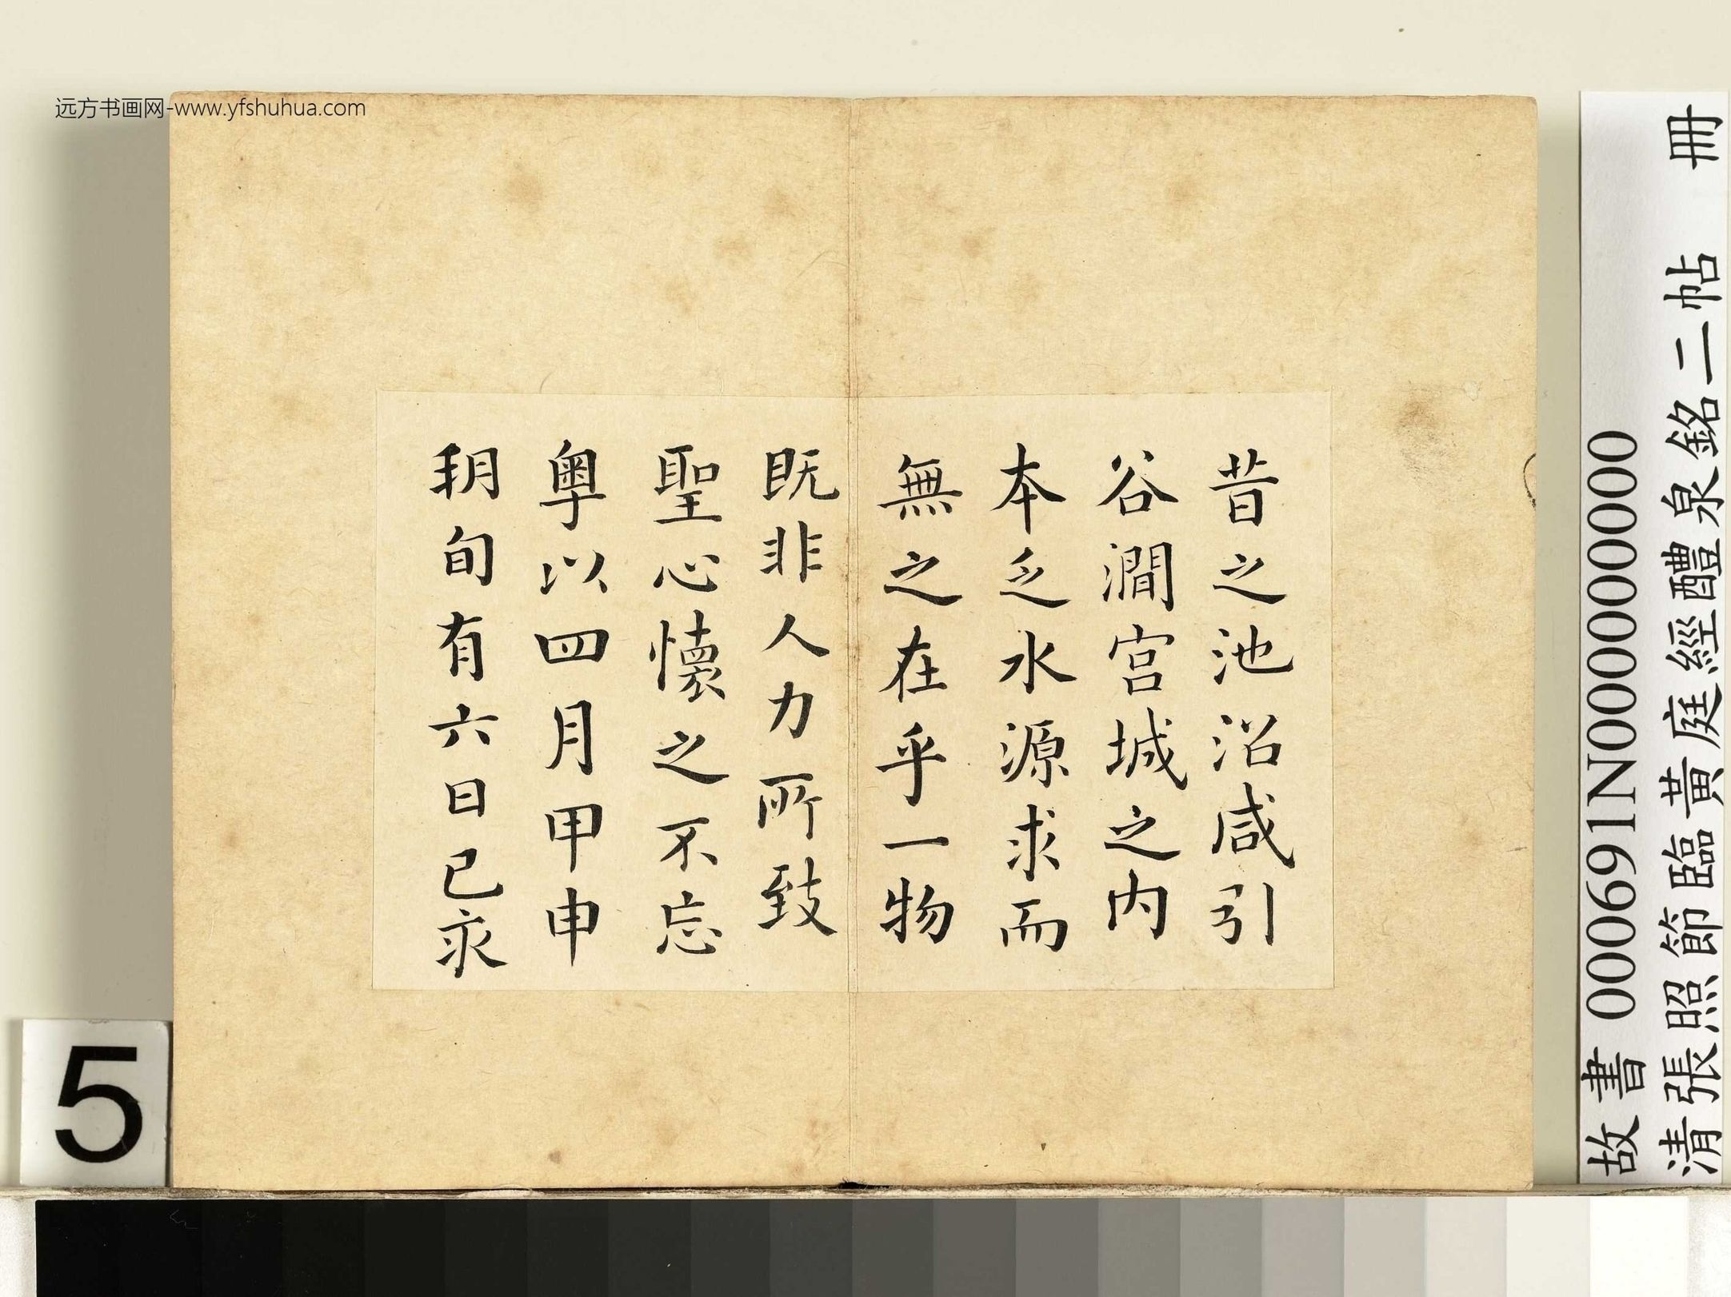 远方书画网-www.yfshuhua.com
昔之池沼咸引
谷澗宮城之内
本乏水源求而
無之在乎一物
既非人力所致
聖心懷之不忘
粵以四月甲申
朔旬有六日己亥
故書 000691N000000000
清張照節臨黃庭經醴泉銘二帖 冊
5